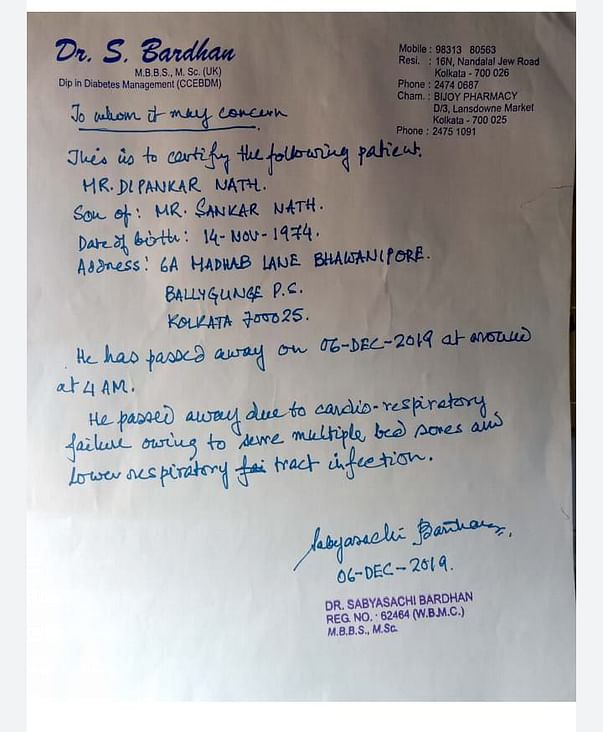 Dr. S. Bardhan
M.B.B.S., M. Sc. (UK)
Dip in Diabetes Management (CCEBDM)
Mobile : 98313 80563
Resi. : 16N, Nandalal Jew Road
Kolkata - 700 026
Phone : 2474 0687
Cham. : BIJOY PHARMACY
D/3, Lansdowne Market
Kolkata - 700 025
Phone : 2475 1091
To whom it may concern
This is to certify the following patient.
MR. DIPANKAR NATH.
Son of: MR. SANKAR NATH.
Date of birth: 14-NOV-1974.
Address: 6A MADHAB LANE BHAWANIPORE.
BALLYGUNGE P.S.
KOLKATA 700025.
He has passed away on 06-DEC-2019 at around
at 4 AM.
He passed away due to cardio-respiratory
failure owing to multiple bed sores and
Lower respiratory tract infection.
Sabyasachi Bardhan.
06-DEC-2019.
DR. SABYASACHI BARDHAN
REG. NO. : 62464 (W.B.M.C.)
M.B.B.S., M.Sc.